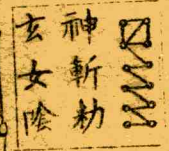 神斬勅
玄女陰